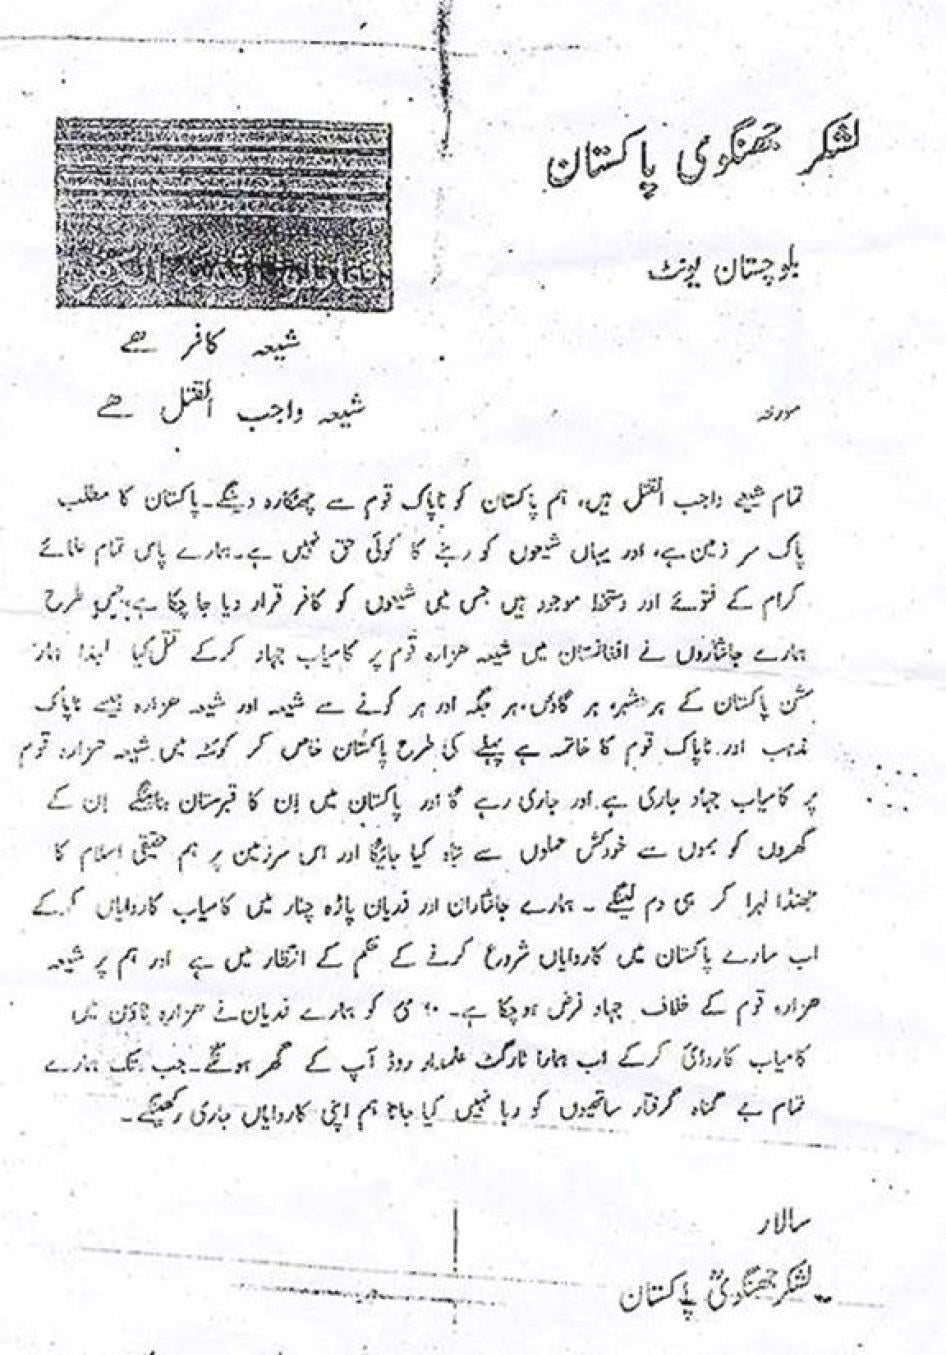 لشکر جھنگوی پاکستان
بلوچستان یونٹ
شیعہ کافر ھے
شیعہ واجب القتل ھے
مورخہ
تمام شیعے واجب القتل ہیں، ہم پاکستان کو ناپاک قوم سے چھٹکارہ دینگے۔ پاکستان کا مطلب
پاک سر زمین ہے، اور یہاں شیعوں کو رہنے کا کوئی حق نہیں ہے۔ ہمارے پاس تمام علمائے
کرام کے فتوئے اور دستخط موجود ہیں جس میں شیعوں کو کافر قرار دیا جا چکا ہے، جس طرح
ہمارے جانثاروں نے افغانستان میں شیعہ ھزارہ قوم پر کامیاب جہاد کرکے قتل کیا لہذا ہمار
مشن پاکستان کے ہر شہر، ہر گاؤں، ہر جگہ اور ہر کونے سے شیعہ اور شیعہ ھزارہ جیسے ناپاک
مذہب اور ناپاک قوم کا خاتمہ ہے پہلے کی طرح پاکستان خاص کر کوئٹہ میں شیعہ ھزارہ قوم
پر کامیاب جہاد جاری ہے اور جاری رہے گا اور پاکستان میں اِن کا قبرستان بنائینگے اِن کے
گھروں کو بموں سے خودکش حملوں سے تباہ کیا جائیگا اور اس سرزمین پر ہم حقیقی اسلام کا
جھنڈا لہرا کر ہی دم لینگے ۔ ہمارے جانثاران اور فدیان پاڑہ چنار میں کامیاب کاروایاں کرکے
اب سارے پاکستان میں کاروایاں شروع کرنے کے حکم کے انتظار میں ہے اور ہم پر شیعہ
ھزارہ قوم کے خلاف جہاد فرض ہو چکا ہے۔ مئی کو ہمارے فدیان نے ھزارہ ٹاؤن میں
کامیاب کاروائی کرکے اب ہمارا ٹارگٹ علمدار روڈ آپ کے گھر ہونگے۔ جب تک ہمارے
تمام بے گناہ گرفتار ساتھیوں کو رہا نہیں کیا جاتا ہم اپنی کاروایاں جاری رکھینگے۔
سالار
لشکر جھنگویؒ پاکستان